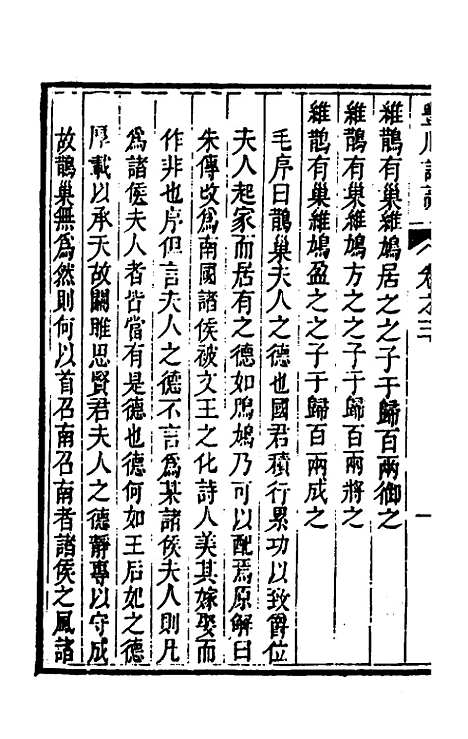 維鵲有巢維鳩居之之子于歸百兩御之
維鵲有巢維鳩方之之子于歸百兩將之
維鵲有巢維鳩盈之之子于歸百兩成之
毛序曰鵲巢夫人之德也國君積行累功以致爵位
夫人起家而居有之德如鳲鳩乃可以配焉原解曰
朱傳改爲南國諸侯被文王之化詩人美其嫁娶而
作非也序但言夫人之德不言爲某諸侯夫人則凡
爲諸侯夫人者皆當有是德也德何如王后如之德
厚載以承天故關雎思賢君夫人之德靜專以守成
故鵲巢無爲然則何以首召南召南者諸侯之風諸